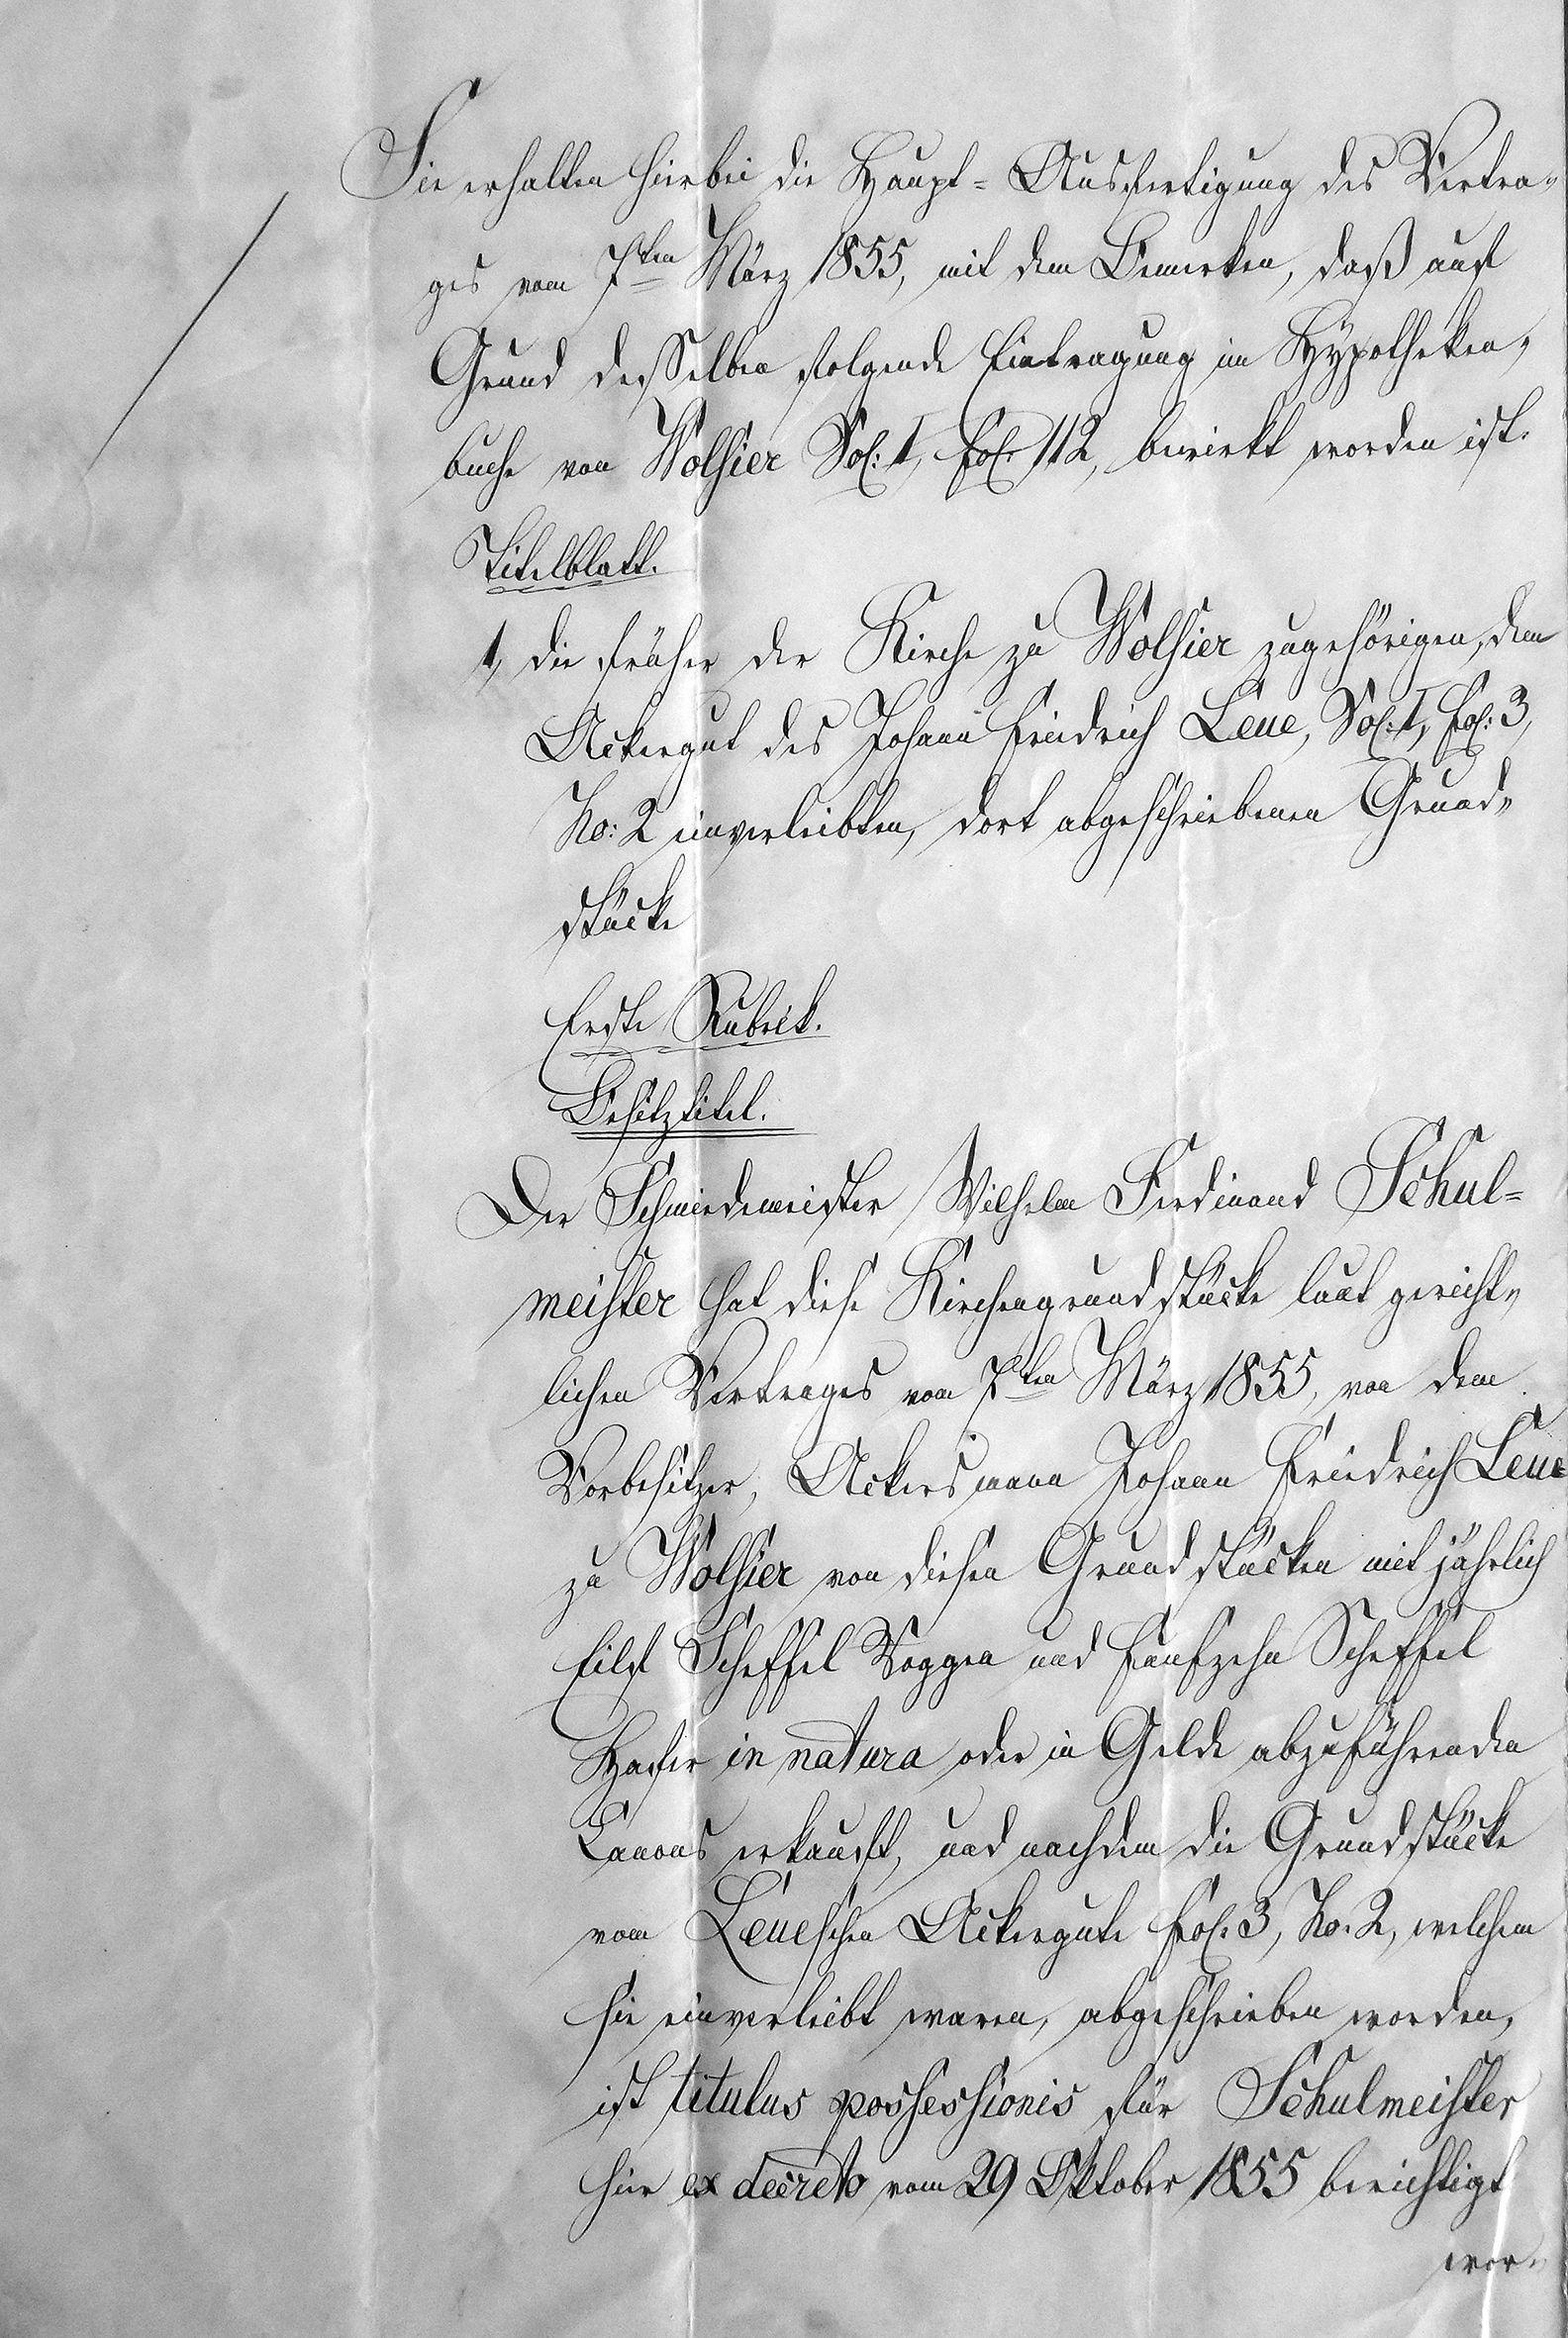 Sie erhalten hierbei die Haupt-Ausfertigung des Vertra-
ges vom 7ten März 1855, mit dem Bemerken, daß auf
Grund desselben folgende Eintragung im Hypotheken-
buche von Wolsier Vol: I, Fol: 112, bewirkt worden ist.
Titelblatt.
1, die früher der Kirche zu Wolsier zugehörigen, dem
Ackergut des Johann Friedrich Leue, Vol: I, Fol: 3,
No: 2 einverleibten, dort abgeschriebenen Grund-
stücke
Erste Rubrik.
Besitztitel.
Der Schmiedemeister Wilhelm Ferdinand Schul-
meister hat diese Kirchengrundstücke laut gericht-
lichen Vertrages vom 7ten März 1855, von dem
Vorbesitzer, Ackersmann Johann Friedrich Leue
zu Wolsier von diesen Grundstücken mit jährlich
Eilf Scheffel Roggen und Fünfzehn Scheffel
Hafer in natura oder in Gelde abzuführenden
Canons erkauft, und nachdem die Grundstücke
vom Leueschen Ackergute Fol: 3, No. 2, welchem
sie einverleibt waren, abgeschrieben worden,
ist titulus possessionis für Schulmeister
hier ex decreto vom 29 Oktober 1855 berichtigt
wor-